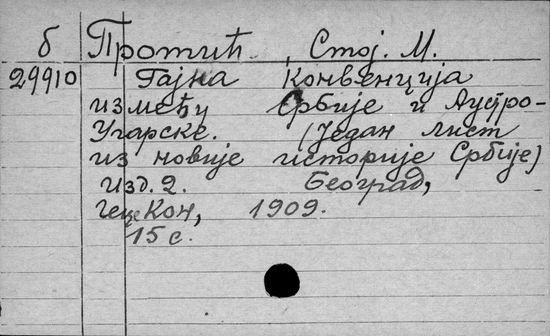 б Протић, Стој. М.
29910 Тајна Конвенција
између Србије и Аустро-
Угарске. (Један лист
из новије историје Србије)
Изд. 2. Београд,
Геце Кон, 1909.
15 с.